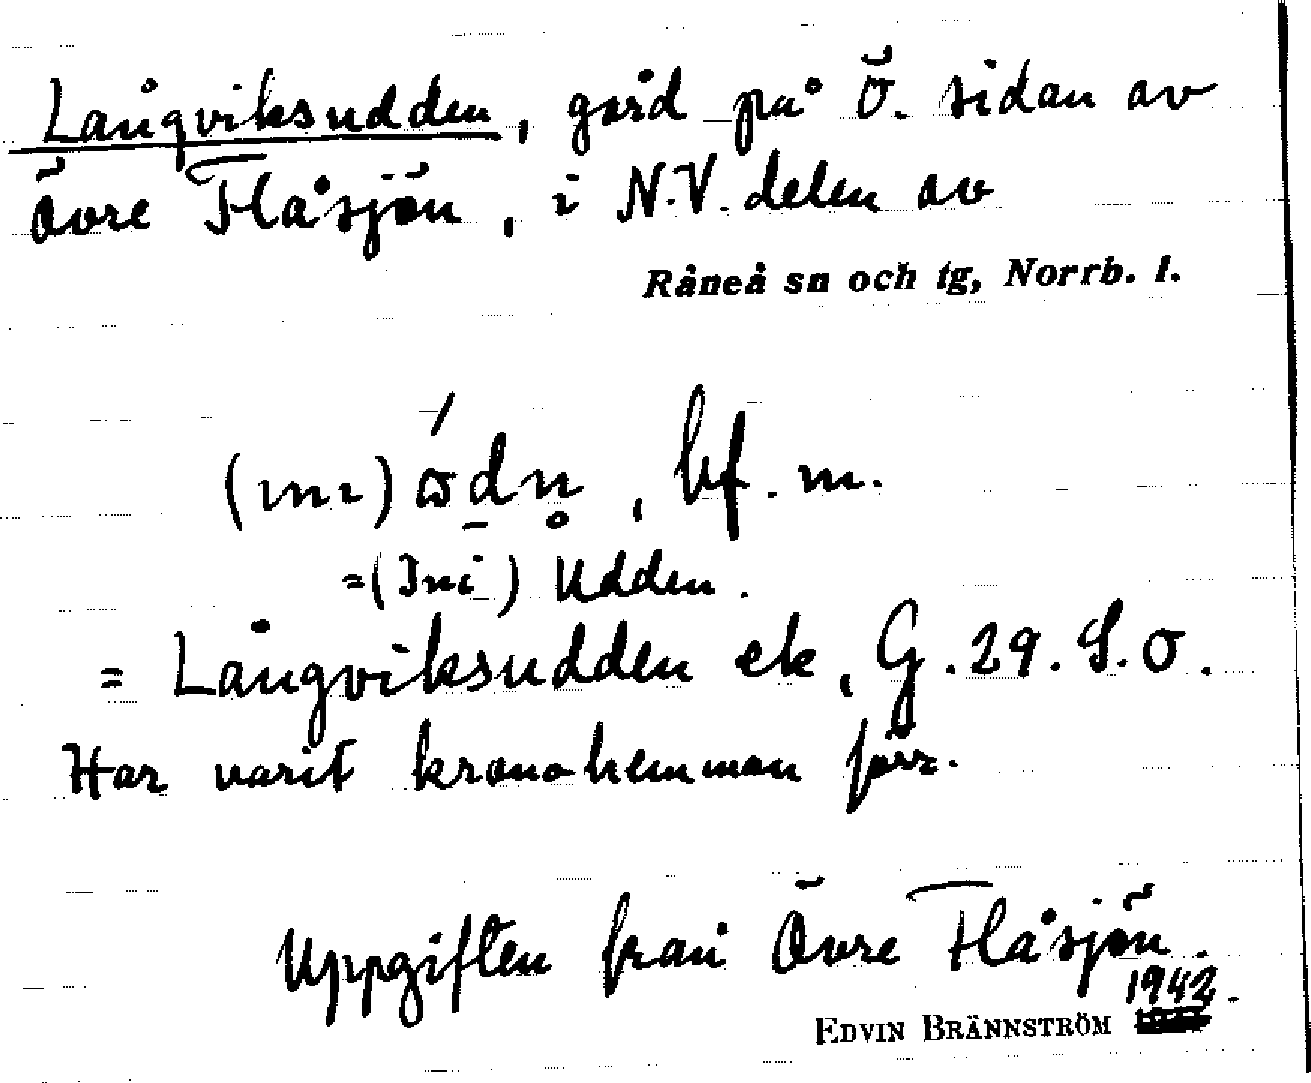 Långviksudden, gård på Ö. sidan av
Övre Flåsjön, i N.V. delen av
Råneå sn och tg, Norrb. l.
bf. m.
=(Ini) Udden.
= Långviksudden ek, G. 29. S.O.
Har varit kronohemman förr.
Uppgiften från Övre Flåsjön.
1942.
EDVIN BRÄNNSTRÖM